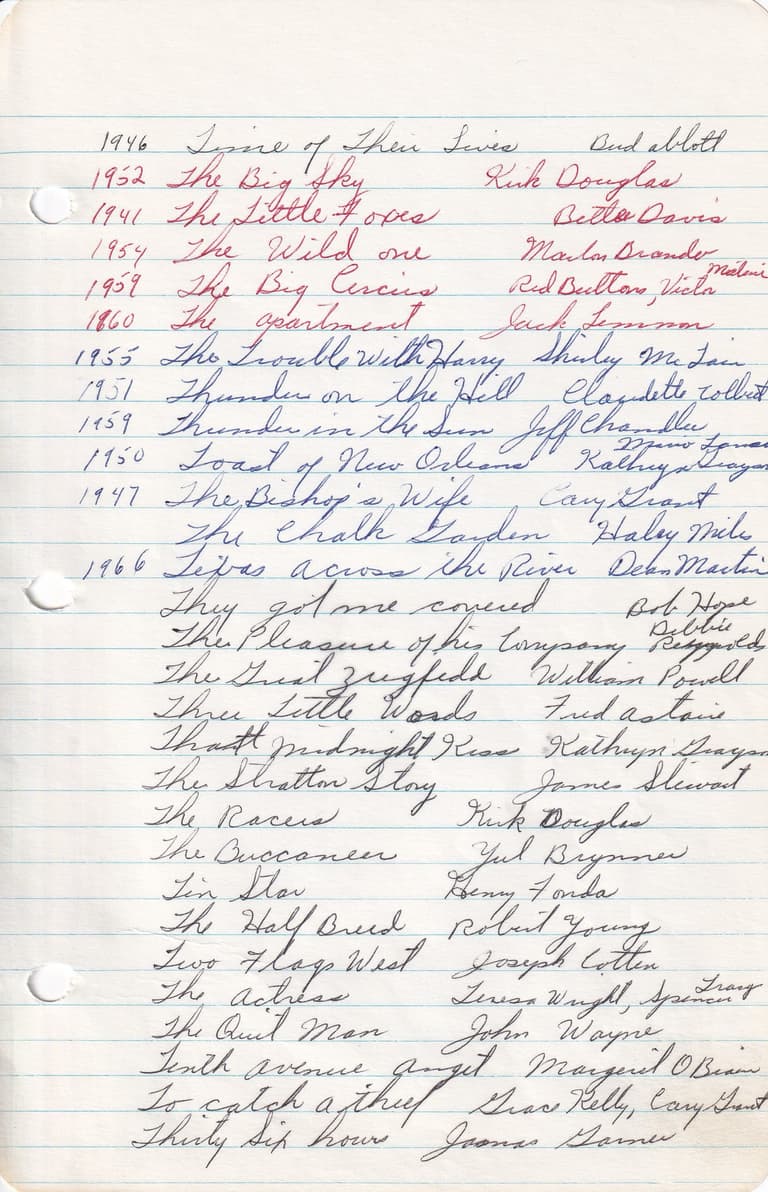 1946 Time of Their Lives Bud abbott
1952 The Big Sky Kirk Douglas
1941 The Little Foxes Bette Davis
1954 The Wild one Marlon Brando
1959 The Big Circus Red Buttons, Victor Mature
1960 The apartment Jack Lemmon
1955 The Trouble With Harry Shirley McLain
1951 Thunder on the Hill Claudette Colbert
1959 Thunder in the Sun Jeff Chandler
1950 Toast of New Orleans Kathryn Grayson Mario Lanza
1947 The Bishop's Wife Cary Grant
The Chalk Garden Haley Mills
1966 Texas across the River Dean Martin
They got me covered Bob Hope
The Pleasure of his Company Debbie Reynolds
The Great Ziegfeld William Powell
Three Little Words Fred astaire
That midnight Kiss Kathryn Grayson
The Stratton Story James Stewart
The Racers Kirk Douglas
The Buccaneer Yul Brynner
Tin Star Henry Fonda
The Half Breed Robert Young
Two Flags West Joseph Cotten
The actress Teresa Wright, Spencer Tracy
The Quit Man John Wayne
Tenth avenue angel Margeret O Brien
To catch a thief Grace Kelly, Cary Grant
Thirty Six hours James Garner